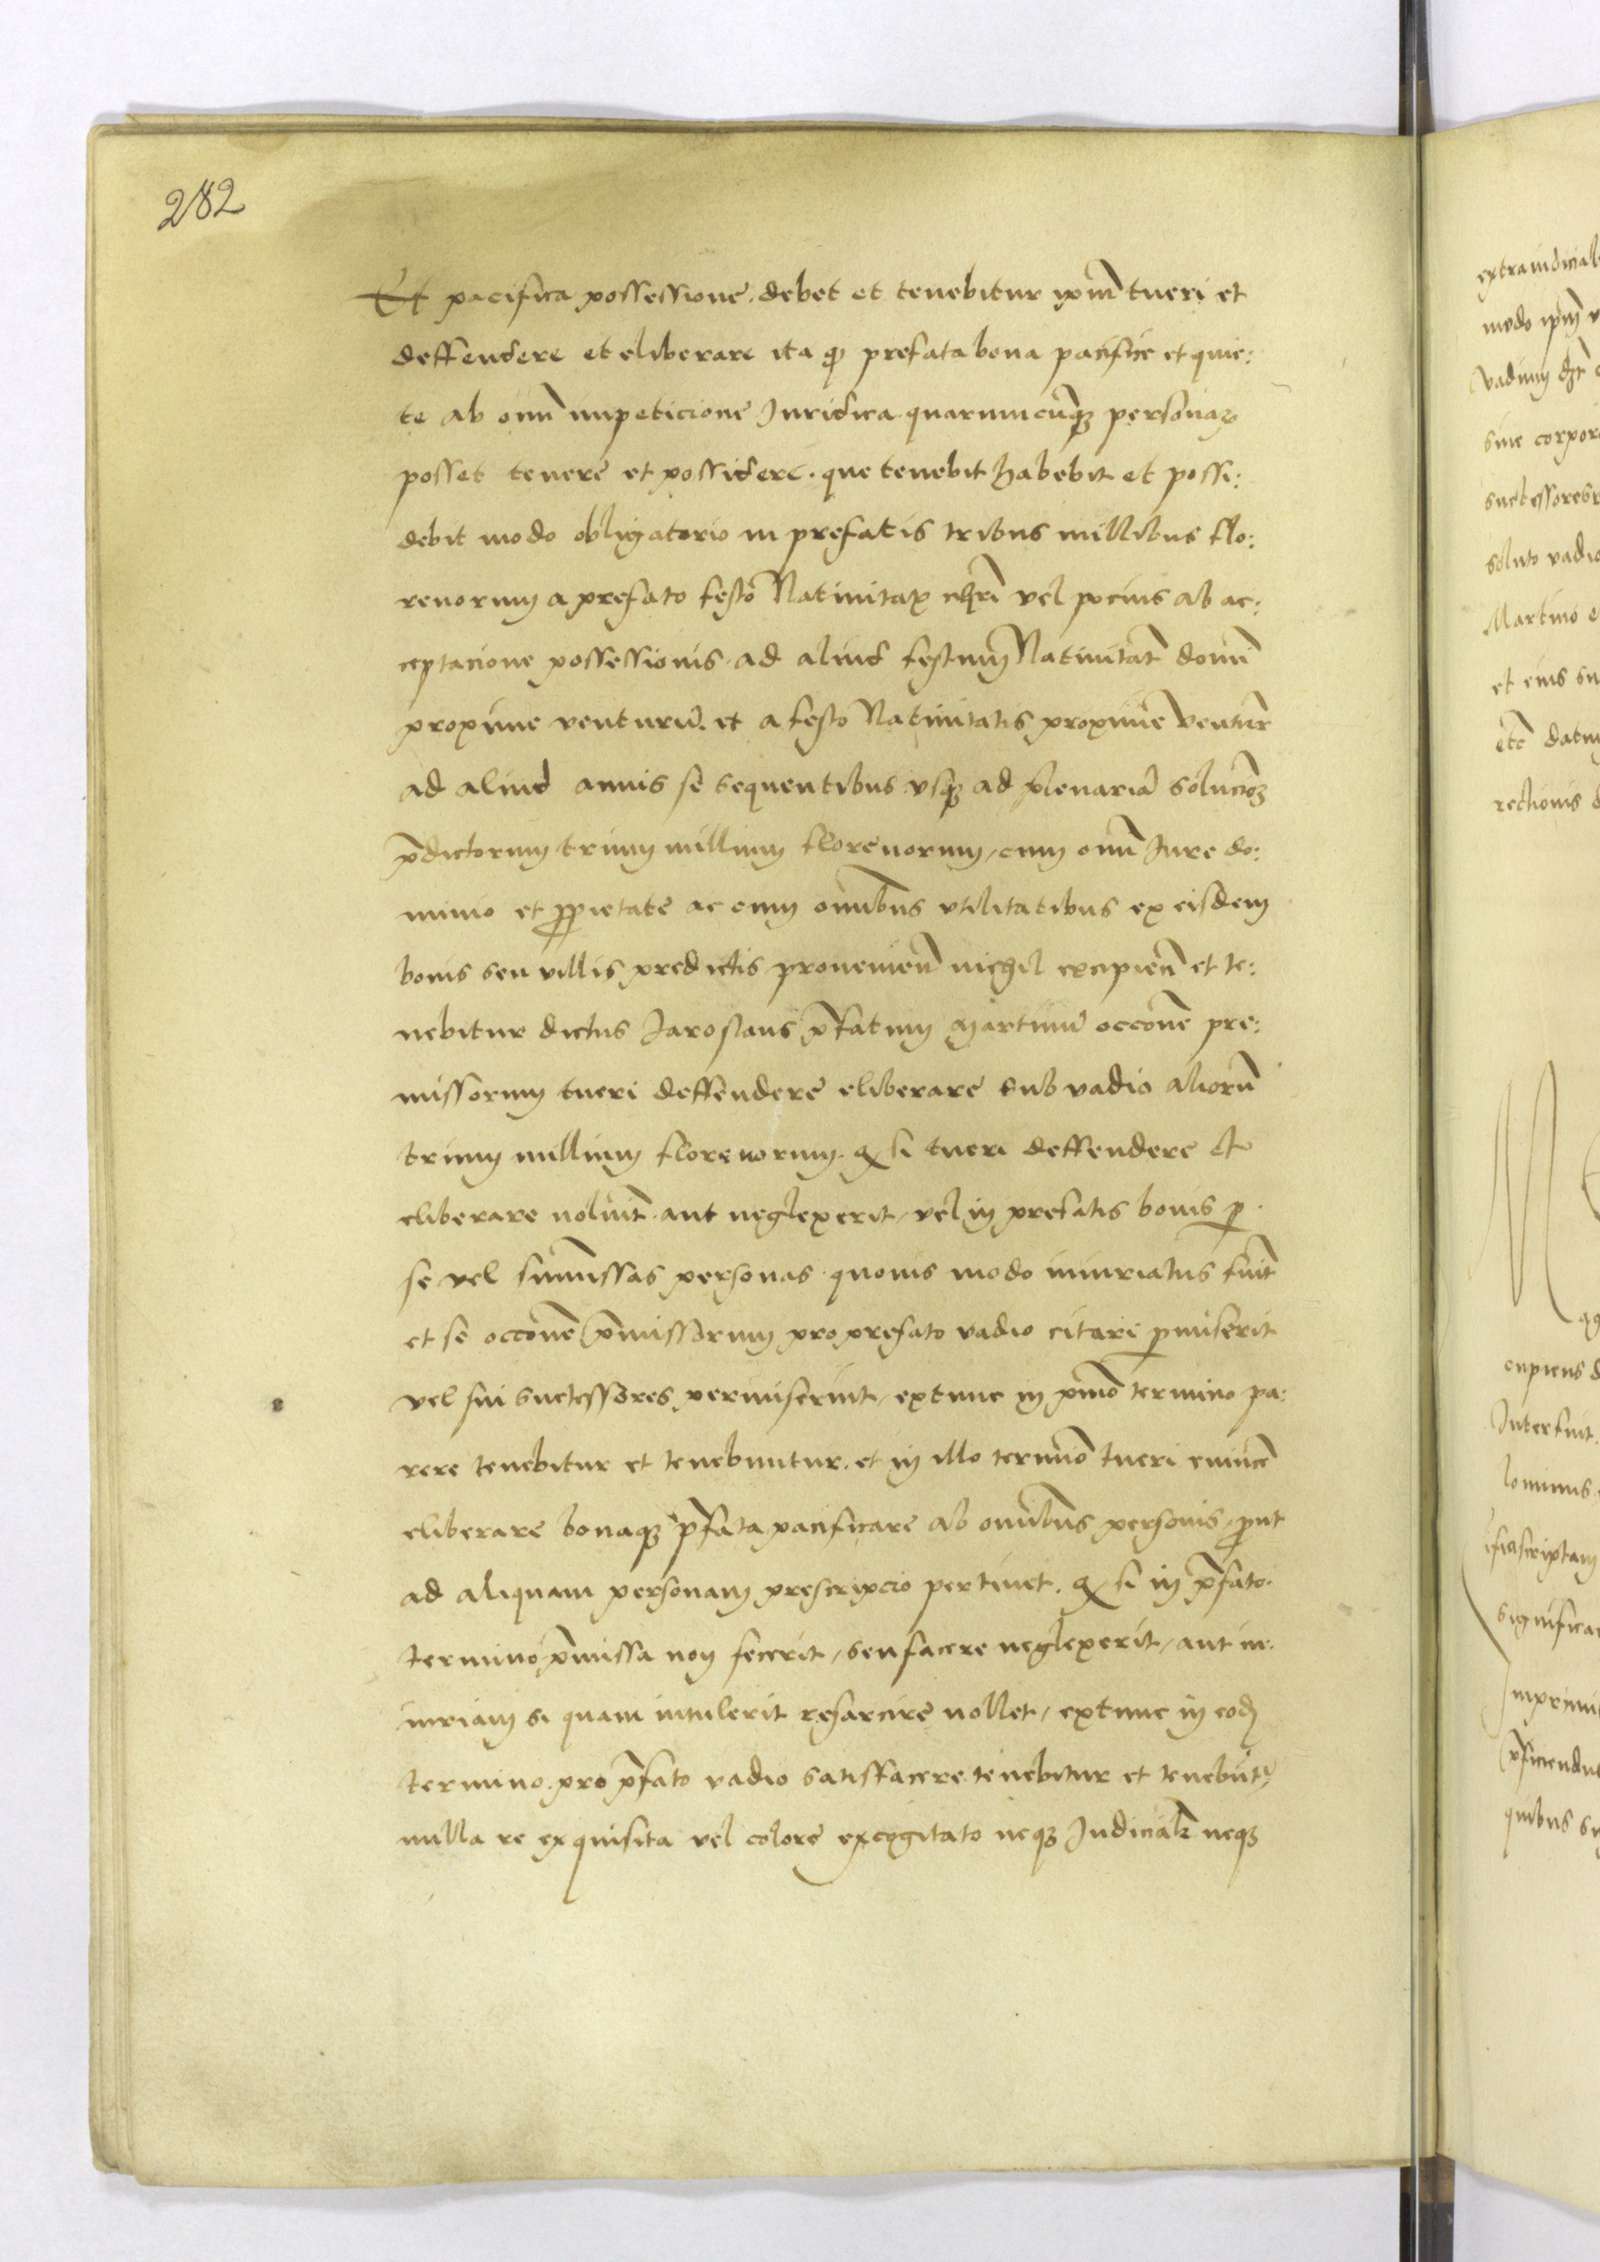 282
Et pacifica possessione. debet et tenebitur ipm̄ tueri et
deffendere et eliberare ita qꝫ prefata bona pacifice et quie:
te ab om̄i impeticione Iuridica quarumcūqꝫ personaꝝ
posset tenere et possidere. que tenebit habebit et possi:
debit modo obligatorio in prefatis tribus millibus flo:
renorum a prefato festo Natiuitatꝭ chrī vel pocius ab ac:
ceptacione possessionis ad aliud festum Natiuitatꝭ domī
proxime venturū. et a festo Natiuitatis proxime ventur̄
ad aliud annis se sequentibus vsqꝫ ad plenariā solucioꝫ
p̄dictorum trium millium florenorum, cum om̄i Iure do:
minio et ꝓprietate ac cum om̄ibus vtilitatibus ex eisdem
bonis seu villis predictis prouenien̄ nichil excipien̄ et te:
nebitur dictus Iaroslaus p̄fatum Martinū occōne pre:
missorum tueri deffendere eliberare sub vadio aliorū
trium millium florenorum. Qꝫ si tueri deffendere et
eliberare noluit̄ aut neglexerit, vel in prefatis bonis ꝑ
se vel summissas personas quouis modo iniuriatus fuit̄
et se occōne p̄missorum pro prefato vadio citare ꝑmiserit
vel sui successores permiserint, extunc in p̄mo termino pa:
rere tenebitur et tenebuntur. et in illo termīo tueri euincē
eliberare bonaqꝫ p̄fata pacificare ab om̄ibus personis, ꝓut
ad aliquam personam prescripcio pertinet. Qꝫ si in p̄fato
termino p̄missa non fecerit, seu facere neglexerit, aut in:
iuriam si quam intulerit resarcire nollet, extunc in eodꝫ
termino. pro p̄fato vadio satisfacere tenebitur et tenebūtʳ
nulla re exquisita vel colore excogitato neqꝫ Iudicialꝭ neqꝫ
extraiudicial
modo ipm̄
vadium
siue corpor
successores
soluto vadio
Martino e
et eius su
etc̄ datu
rectionis
M
cupiens
Interfuit
lominus
ifrascriptam
significa
Imprimi
p̄ficiendu
quibus su